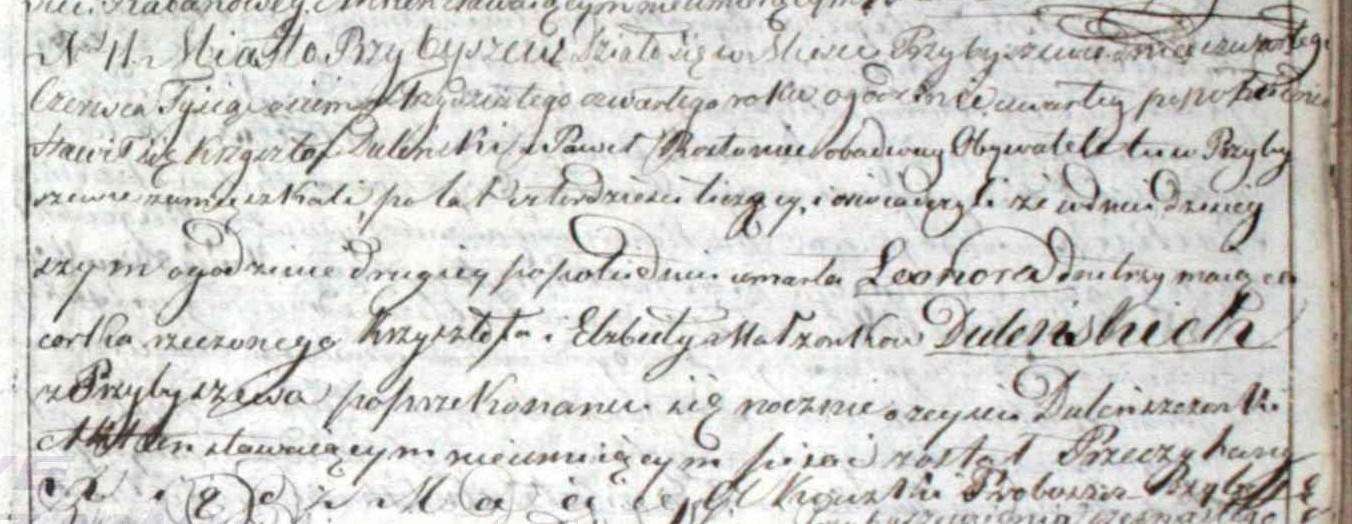 Nº 11. Miasto Przybyszew Działo się w Mieście Przybyszewie dnia czwartego
Czerwca Tysiąc osiemset trzydziestego czwartego roku o godzinie czwartey popołudniu
stawił się Krzysztof Duleński i Paweł obadway Obywatele tu w Przyby
szewie zamieszkali, po lat czterdzieści liczący, i oświadczyli że w dniu dzisiey
szym o godzinie drugiey popołudniu umarła Leonora dni trzy maiąca
corka rzeczonego Krzysztofa i Elżbiety Małżonkow Duleńskich
z Przybyszewa po przekonaniu się naocznie o zeyściu Duleńszczonki
Akt ten stawaiącym nieumieiącym pisać został Przeczytany
X i ą d z M a c i e y Proboszcz